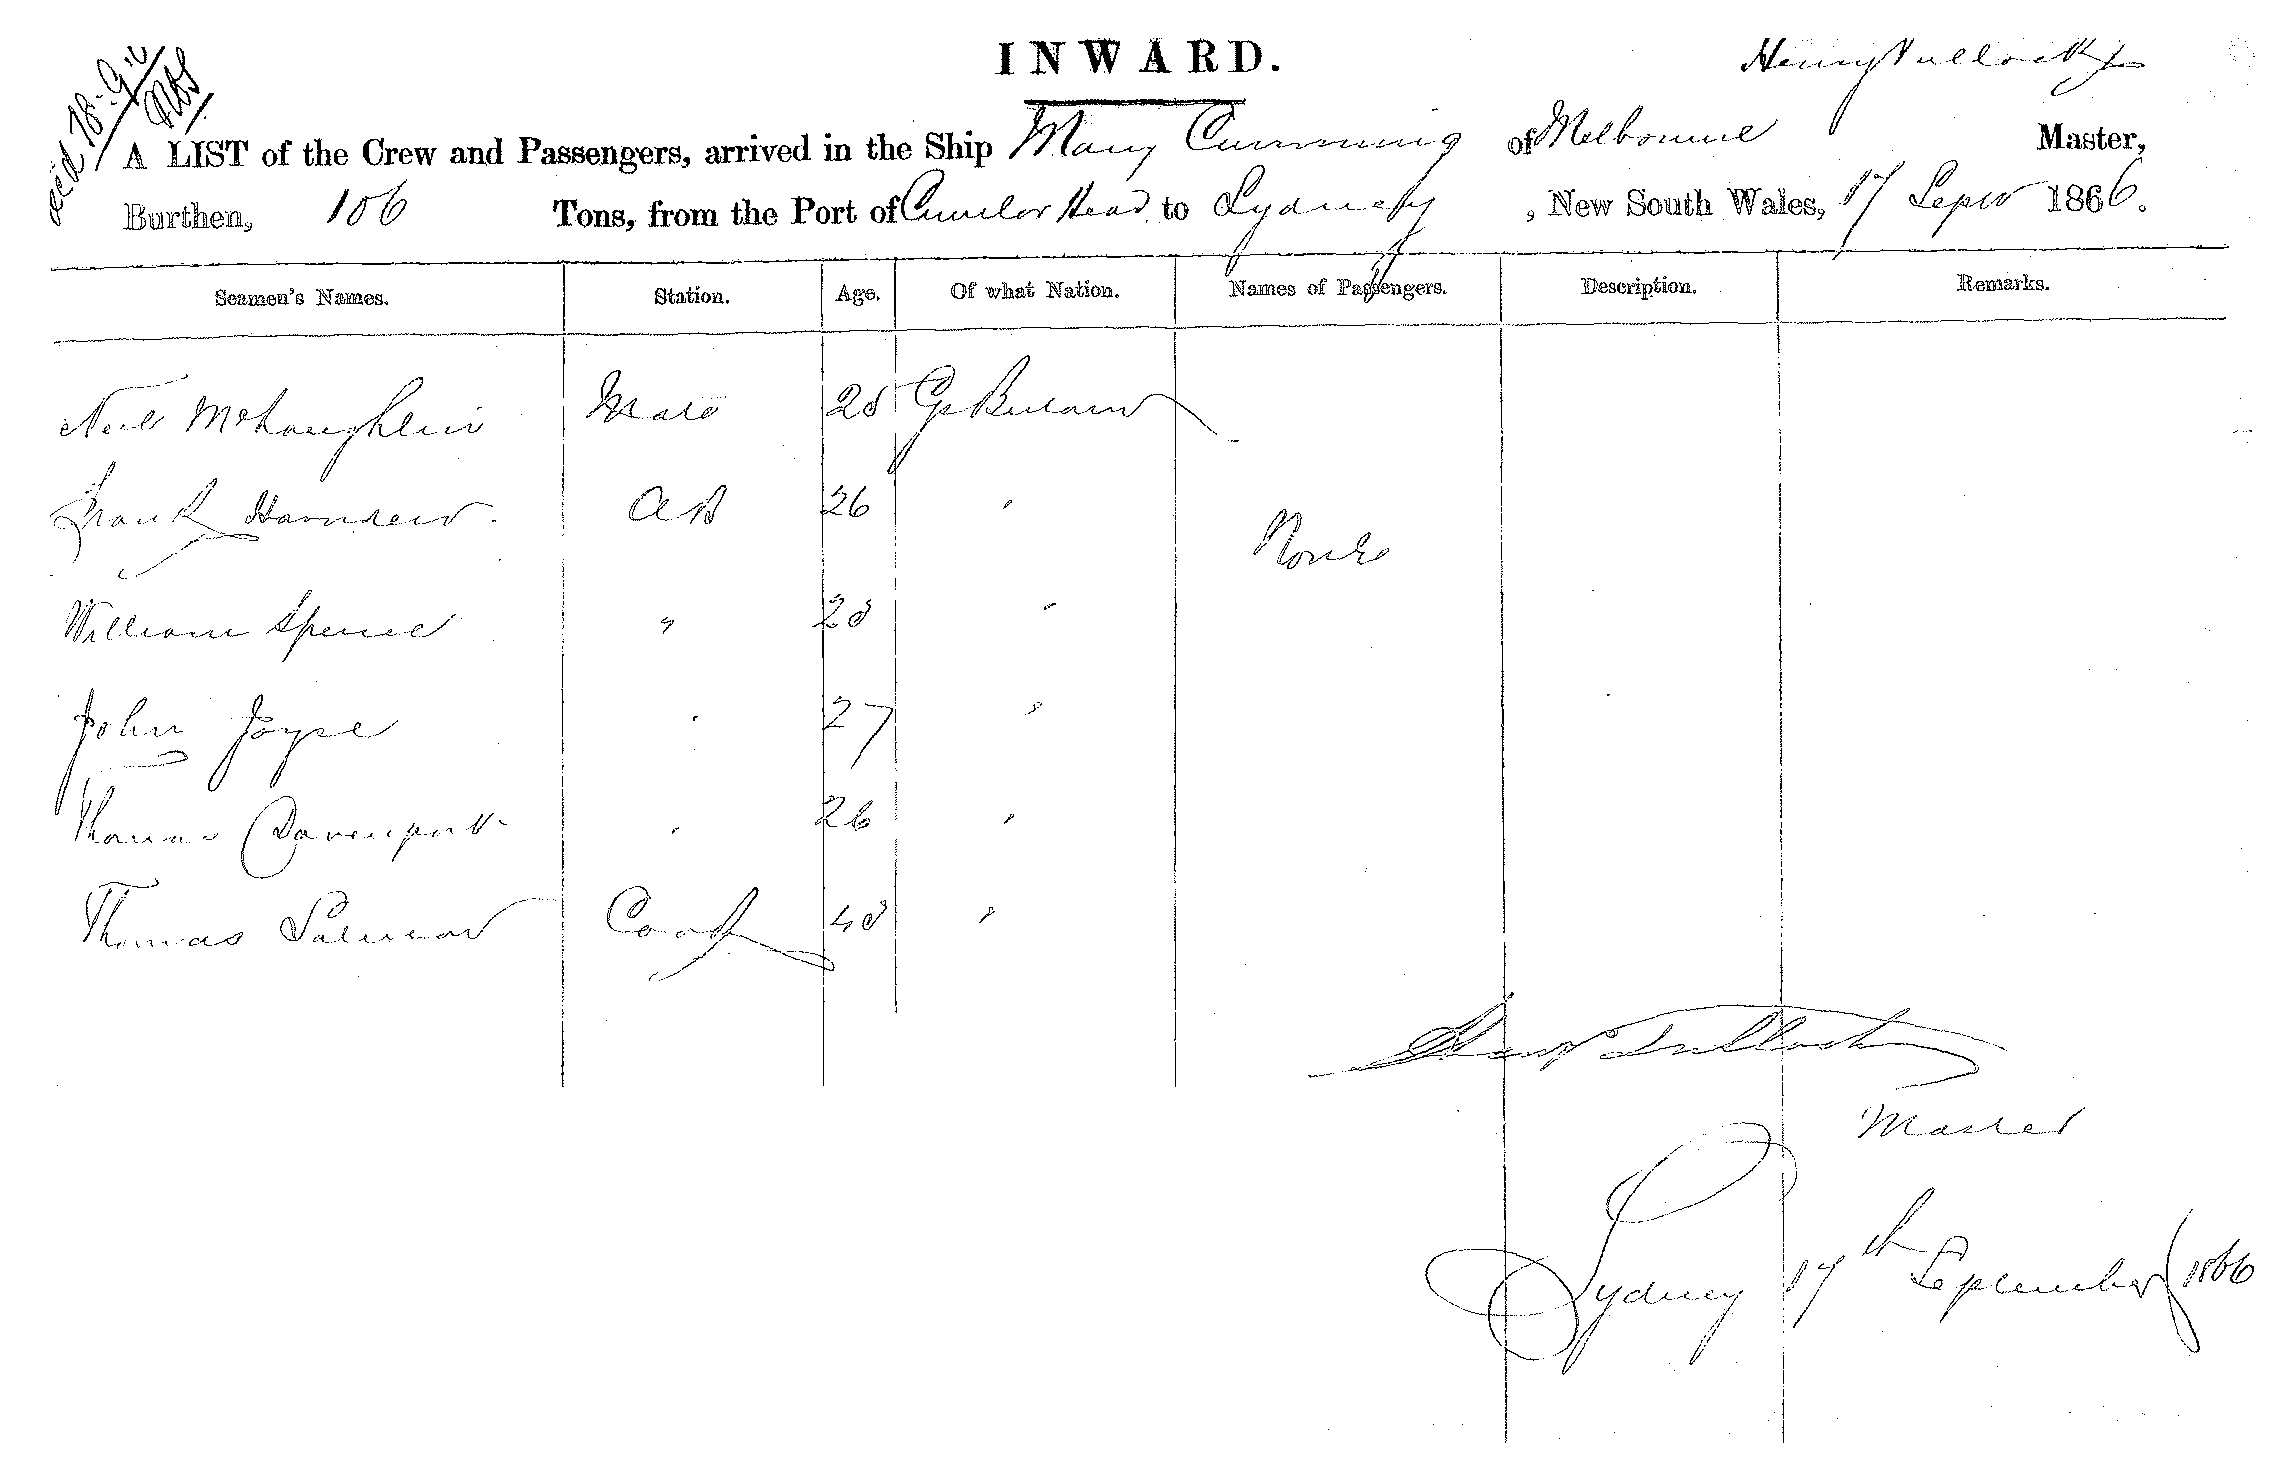 INWARD.
Henry Tullock
A LIST of the Crew and Passengers, arrived in the Ship Mary Cumming of Melbourne Master,
Burthen, 106 Tons, from the Port of Head to Sydney, New South Wales, 17 Sepr 1866.
Seamen's Names. Station. Age. Of what Nation. Names of Passengers. Description. Remarks.
Neil McLaughlin Mate 28 Gt Britain
Frank AB 26 "
None
William Spence " 28 "
John Joyce " 27 "
Thomas Davenport " 26 "
Thomas Salmon Cook 48 "
Henry Tullock
Master
Sydney 17th September 1866